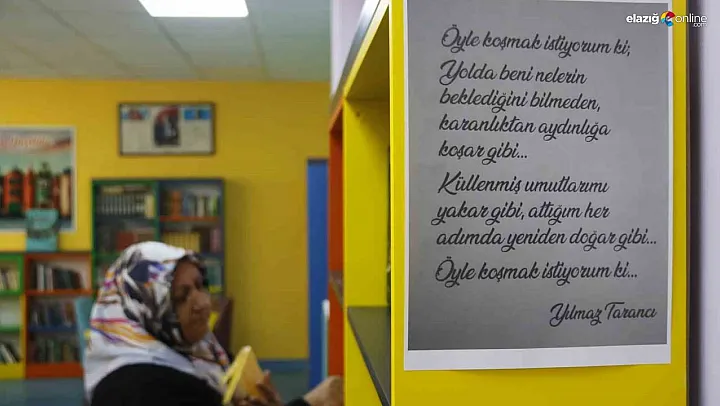 elazığ online
.com
Öyle koşmak istiyorum ki;
Yolda beni nelerin
beklediğini bilmeden,
karanlıktan aydınlığa
koşar gibi...
Küllenmiş umutlarımı
yakar gibi, attığım her
adımda yeniden doğar gibi...
Öyle koşmak istiyorum ki...
Yılmaz Tarancı